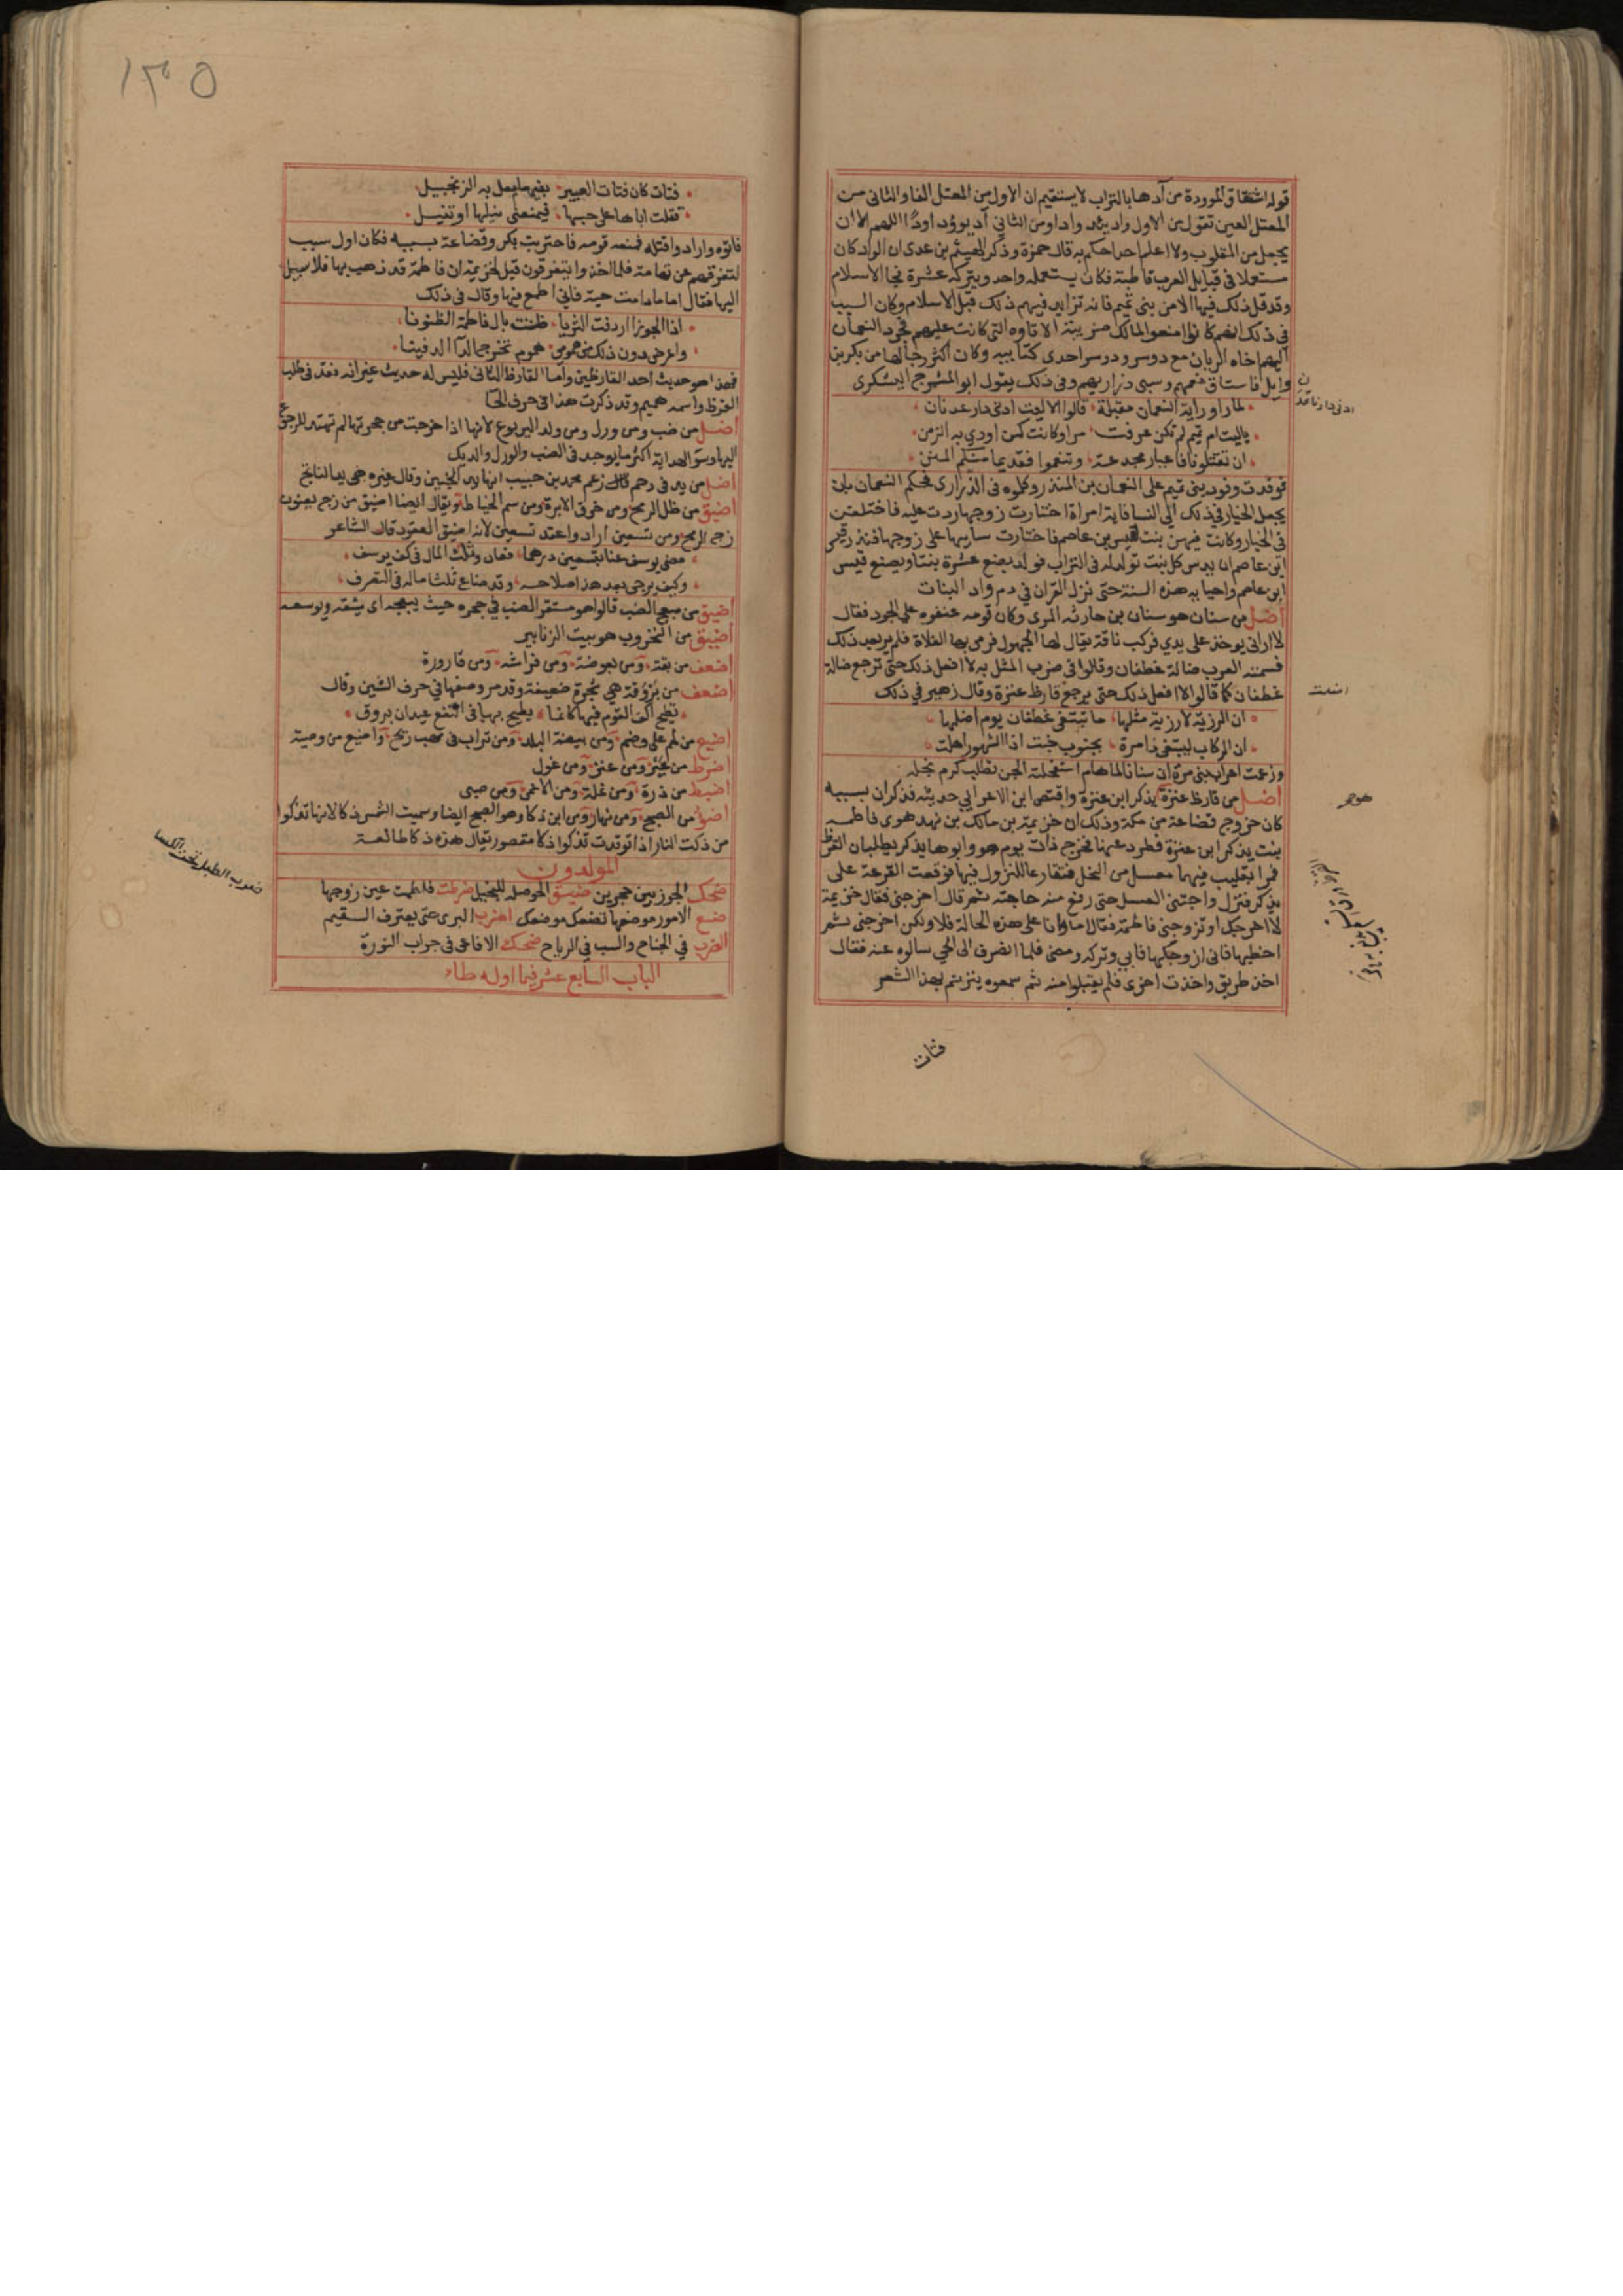 قوله اشتقاق الموودة من آدها بالتراب لا يستقيم لان الاول من المعتل الفا والثاني من
المعتل العين تقول من الاول واد يئد وادا ومن الثاني آد يوؤد اودًا اللهم الا ان
يجعل من المقلوب ولا اعلم احدا حكم به قال حمزة وذكر الهيثم بن عدى ان الواد كان
مستعملا في قبايل العرب قاطبة فكان يستعمله واحد ويتركه عشرة فجا الاسلام
وقد قل ذلك فيها الا من بنى تميم فانه تزايد فيهم ذلك قبل الاسلام وكان السبب
في ذلك انهم كانوا منعوا الملك ضريبته الاتاوه التي كانت عليهم فجرد النعمان
اليهم اخاه الريان مع دوسر ودوسر احدى كتايبه وكان اكثر رجالها من بكر بن
وايل فاستاق نعمهم وسبى ذراريهم وفي ذلك يقول ابو المشمرج اليشكرى
ادنى دارنا عدن
لما راوا راية النعمان مقبلة قالوا الا ليت ادنى دار عدنان
ياليت ام تميم لم تكن عرفت مرا وكانت كمن اودي به الزمن
ان تقتلونا فاعيار مجدعة وتنعموا فقديما منكم المنن
فوفدت وفود بنى تميم على النعمان بن المنذر وكلموه في الذرارى فحكم النعمان بان
يجعل الخيار في ذلك الى النسا فاية امراة اختارت زوجها ردت عليه فاختلفن
في الخيار وكانت فيهن بنت لقيس بن عاصم فاختارت سابيها على زوجها فنذر قيس
ابن عاصم ان يدس كل بنت تولد له في التراب فولد بضع عشرة بنتا وبصنع قيس
ابن عاصم واحيايه هذه السنة حتى نزل القران في ذم واد البنات
اضل من سنان هو سنان بن حارثه المرى وكان قومه عنفوه على الجود فقال
لا ارانى يوخذ على يدي فركب ناقة يقال لها الجهول فرمى بها الفلاة فلم ير بعد ذلك
فسمته العرب ضالة غطفان وقالوا في ضرب المثل به لا افعل ذلك حتى ترجع ضالة
غطفان كما قالوا لا افعل ذلك حتى يرجع قارظ عنزة وقال زهير في ذلك
اضلت
ان الرزية لا رزية مثلها ما تبتغى غطفان يوم اضلها
ان الركاب لتبتغى ذا مرة بجنوب خبت اذا الشهور اهلت
وزعمت اعراب بنى مرة ان سنانا لما هام استفحلته الجن تطلب كرم نجله
اضل من قارظ عنزة يذكر ابن عنزة واقتص ابن الاعرابي حديثه فذكر ان بسببه
هو
كان خروج قضاعة من مكة وذلك ان خزيمة بن مالك بن نهد هوى فاطمه
بنت يذكر ابن عنزة فطرد عنها فخرج ذات يوم هو وابوها يذكر يطلبان القرظ
فمرا بقليب فيها معسل من النحل فتقارعا للنزول فيها فوقعت القرعة على
يذكر فنزل واجتنى العسل حتى رفع منه حاجته ثم قال اخرجنى فقال خزيمة
لا اخرجك او تزوجنى فاطمة فقال اما وانا على هذه الحالة فلا ولكن اخرجنى ثم
اخطبها فانى ازوجكها فابى وتركه ومضى فلما انصرف الى الحي سالوه عنه فقال
اخذ طريق واخذت اخرى فلم يقبلوا منه ثم سمعوه يترنم بهذا الشعر
فتات
١٣٥
فتات كان فتات العبير بفيها يعل به الزنجبيل
قتلت اباها على حبها فيمنعنى نيلها او تنيل
فاتوه واراد واقتله فمنعه قومه فاحتربت بكر وقضاعة بسببه فكان اول سبب
لتفرقهم عن تهامة فلما اخذوا يتفرقون قيل لخزيمة ان فاطمة قد ذهب بها فلا سبيل
اليها فقال اما ما دامت حية فانى اطمع فيها وقال في ذلك
اذا الجوزا اردفت الثريا ظننت بال فاطمة الظنونا
واعرض دون ذلك من همومى هموم تخرج الدا الدفينا
فهذا هو حديث احد القارظين واما القارظ الثانى فليس له حديث غير انه فقد في طلب
القرظ واسمه هميم وقد ذكرت هذا في حرف الحا
اضل من ضب ومن ورل ومن ولد اليربوع لانها اذا خرجت من جحرتها لم تهتد للرجوع
اليها وسؤ الهداية اكثر ما يوجد في الضب والورل والديك
اضل من يد في رحم قال زعم محمد بن حبيب انها يد الجنين وقال غيره هى يد الناتج
اضيق من ظل الرمح ومن خرق الابرة ومن سم الخياط ويقال ايضا اضيق من زج يعنون
زج الرمح ومن تسعين اراد واعقد تسعين لانه اضيق العقود قال الشاعر
مضى يوسف عنا بتسعين درهما فعاد وثلث المال في كف يوسف
وكيف يرجى بعد هذا صلاحه وقد ضاع ثلثا ماله في التصرف
اضيق من مبعج الضب قالوا هو مستقر الضب في جحره حيث يبعجه اى يشقه ويوسعه
اضيق من النخروب هو بيت الزنابير
اضعف من بقة ومن بعوضة ومن فراشه ومن قارورة
اضعف من بروقة هي شجرة ضعيفة وقد مر وصفها في حرف الشين وقال
تطيح اكف القوم فيها كانما يطيح بها في النقع عيدان بروق
اضيع من لحم على وضم ومن بيضة البلد ومن تراب في مهب ريح واضيع من وصية
اضرط من عير ومن عنز ومن غول
اضبط من ذرة ومن نملة ومن الاعمى ومن صبى
اضوا من الصبح ومن نهار ومن ابن ذكا وهو الصبح ايضا وسميت الشمس ذكا لانها تذكوا
من ذكت النار اذا توقدت تذكوا ذكا مقصور يقال هذه ذكا طالعة
المولدون
ضرب الطبل تحت الكسا
ضحك الجوز بين حجرين ضيق الحوصله للبخيل ضرطت فلطمت عين زوجها
ضع الامور مواضعها تضعك موضعك اضرب البرى حتى يعترف السقيم
الضرب في الجناح والسب في الرياح ضحك الافاعى في جراب النورة
الباب السابع عشر فيما اوله طاء